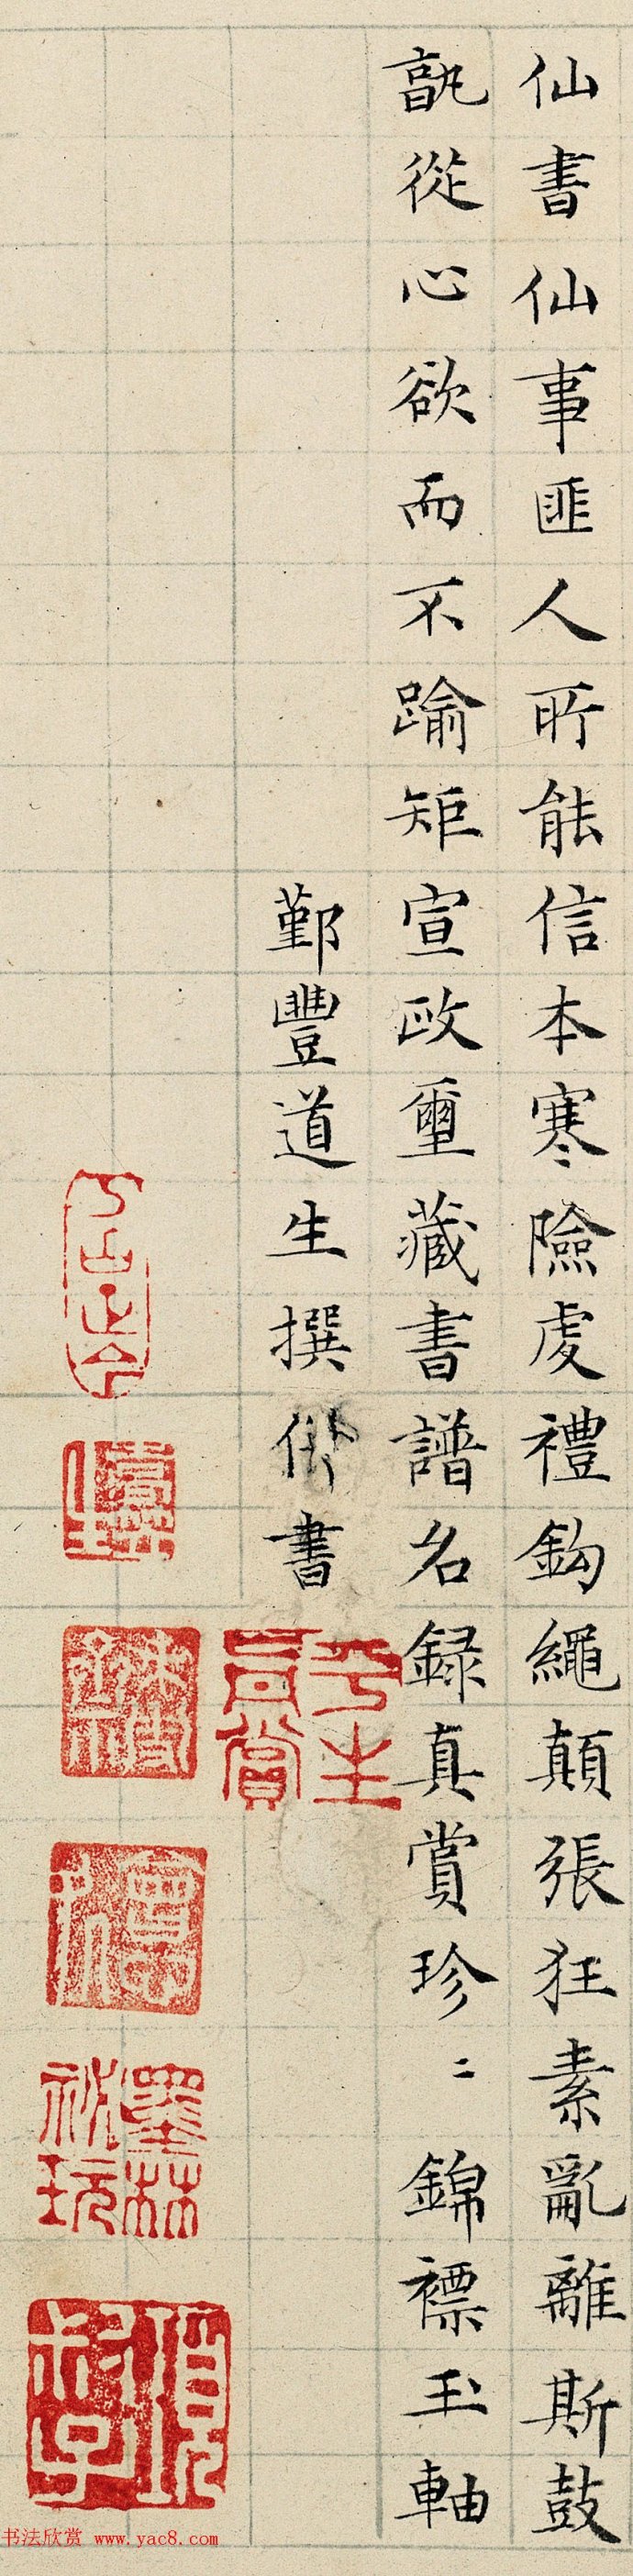 仙書仙事匪人所能信本寒險虔禮鈎繩顛張狂素亂離斯鼓
孰從心欲而不踰矩宣政璽藏書譜名録真賞珍〻錦褾玉軸
鄞豐道生撰併書
平生真賞
墨林祕玩
书法欣赏 www.yac8.com